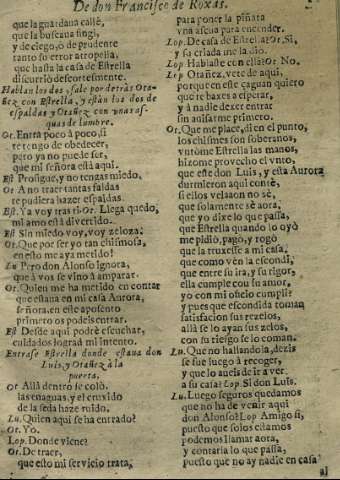 De don Francisco de Roxas.
que la guardaua calle,
que la buscaua fingi,
y de ciego, ò de prudente
tanto su error atropella,
que hasta la casa de Estrella
discurriò descortesmente.
Hablan los dos, sale por detràs Otañez
con Estrella, y estàn los dos de
espaldas y Otañez con vnas asquas
de lumbre.
Or. Entra poco à poco, si
te tengo de obedecer,
pero ya no puede ser,
que mi señora està aqui.
Est Prosigue, y no tengas miedo.
Or A no traer tantas faldas
te pudiera hazer espaldas.
Est. Ya voy tras ti. Or. Llega quedo,
mi amo està diuertido.
Est Sin miedo voy, voy zelosa:
Or. Que por ser yo tan chismosa,
en esto me aya metido!
Lu Pero don Alonso ignora,
que à vos se vino à amparar.
Or. Quien me ha metido en contar
que estaua en mi casa Aurora,
señora, en este aposento
primero os podeis entrar.
Est Desde aqui podrè escuchar,
cuidados lograd mi intento.
Entrase Estrella donde estaua don
Luis, y Otañez à la
puerta.
Or. Allà dentro se colò,
las enaguas, y el cruxido
de la seda haze ruido.
Lu. Quien aqui se ha entrado?
Or. Yo.
Lop. Donde viene?
Or. De traer,
que esto mi seruicio trata,
para poner la piñata
vna ascua para encender.
Lop. De casa de Estrella? Or. Si,
y su criada me la dio.
Lop Hablaste con ella? Or. No.
Lop Otañez, vete de aqui,
porque en este çaguan quiero
que te baxes à esperar,
y à nadie dexes entrar
sin auisarme primero.
Or. Que me place, di en el punto,
los chismes son soberanos,
vntòme Estrella las manos,
hizome prouecho el vnto,
que este don Luis, y esta Aurora
durmieron aqui contè,
si ellos velaron no sè,
que solamente sè aora,
que yo dixe lo que passa,
que Estrella quando lo oyò
me pidiò, pagò, y rogò
que la truxesse a mi casa:
que como vèn la escondi,
que entre su ira, y su rigor,
ella cumple cou su amor,
yo con mi oficio cumpli?
y pues que escondida toman
satisfacion sus rezelos,
allà se lo ayan sus zelos,
con su riesgo se lo coman.
Lu. Que no hallandola, dezis
se fue luego à recoger,
y que lo aueis de ir a ver
a su casa? Lop. Si don Luis.
Lu. Luego seguros quedamos
que no ha de venir aqui
don Alonso? Lop Amigo si,
puesto que solos estamos
podemos llamar aora,
y contarla lo que passa,
puesto que no ay nadie en casa
al